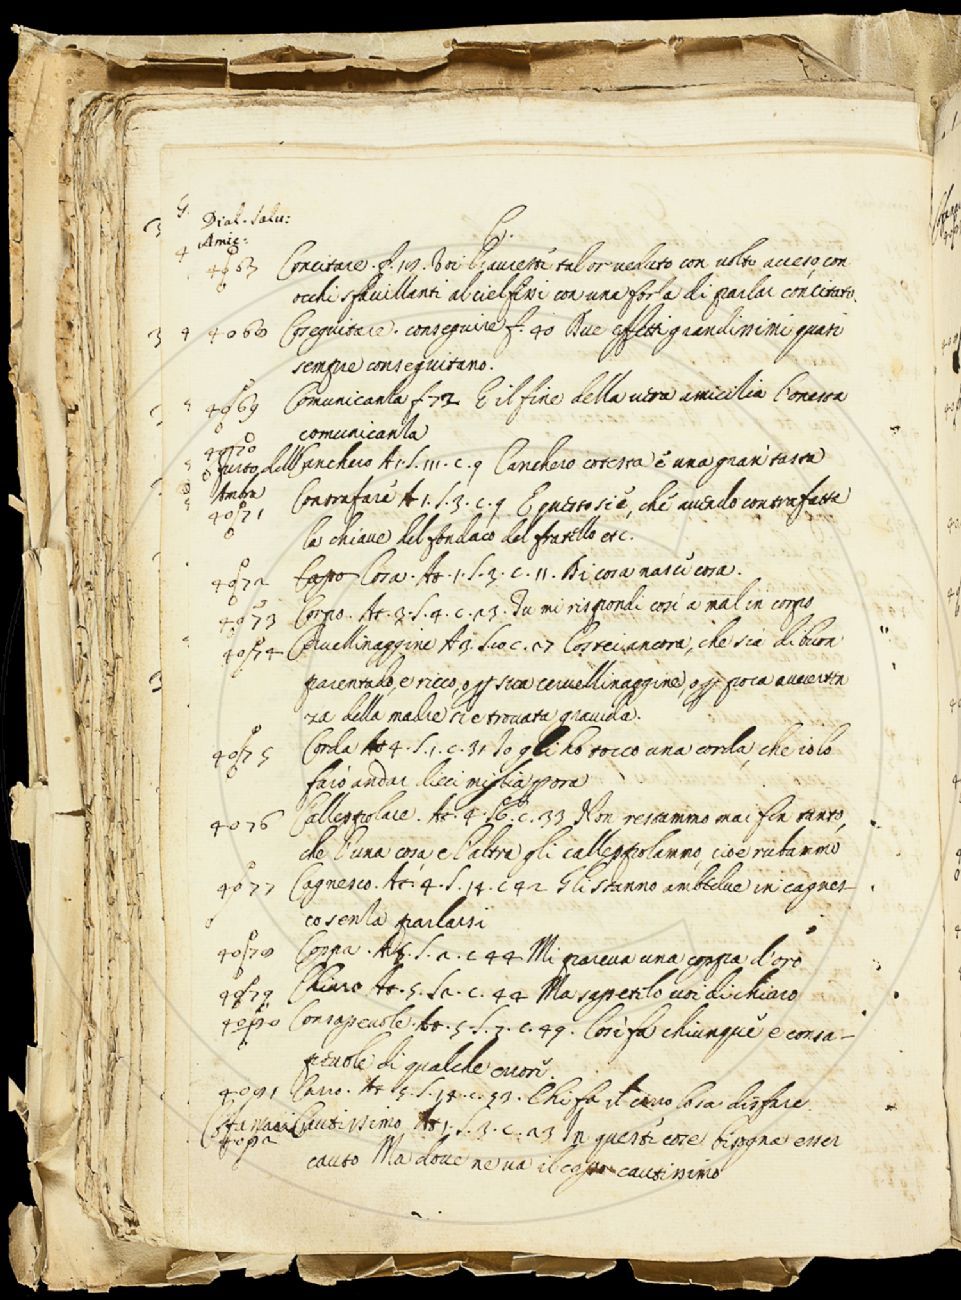 Dial. Salu:
Amic:
C.
4067 Concitare. f. 19. Voi l'avreste tal or veduto con volto acceso, con
occhi sfavillanti al ciel fissi con una forza di parlar concitato.
4068 Conseguitare. conseguire f. 40 Due effetti grandissimi quasi
sempre conseguitano.
4069 Comunicanza f. 72 E il fine della vera amicizia l'onesta
comunicanza
4070
Furto, dell' Canchero At. 1. S. 111. c. 9 Canchero cotesta è una gran tassa
Ambra
4071 Contrafare At. 1. S. 3. c. 9 E questo si è, che avendo contrafatta
la chiave del fondaco del fratello etc.
4072 Cosa. At. 1. S. 3. c. 11. Di cosa nasce cosa.
4073 Corpo. At. 2. S. 4. c. 23. Tu mi rispondi così a mal in corpo
4074 Cervellinaggine At. 3. S. 10 c. 27 Costei ancora, che sia di buon
parentado, e ricco, o p sua cervellinaggine, o p poca avverten
za della madre si è trovata gravida.
4075 Corda At. 4. S. 1. c. 31 Io gli ho tocco una corda, che io lo
farò andar dieci miglia p ora
4076 Calleppiolare. At. 4. S. 6. c. 33 Non restammo mai fin tanto,
che l'una cosa, e l'altra gli calleppiolammo, cioè rubammo
4077 Cagnesco. At. 4. S. 14. c. 42 Gli stanno ambedue in cagnes-
co senza parlarsi
4078 Coppa. At. 5. S. 2. c. 44 Mi pareva una coppa d'oro
4079 Chiaro At. 5. S. 2. c. 44 Ma sapetelo voi di chiaro
4080 Consapevole. At. 5. S. 7. c. 49. Così fa chiunque è consa-
pevole di qualche errore.
4081 Caro. At. 5. S. 14. c. 53. Chi fa il caro cosa disfare
Cautissimo At. 1. S. 3. c. 23 In queste cose bisogna esser
4082
cauto Ma dove ne va il capo cautissimo